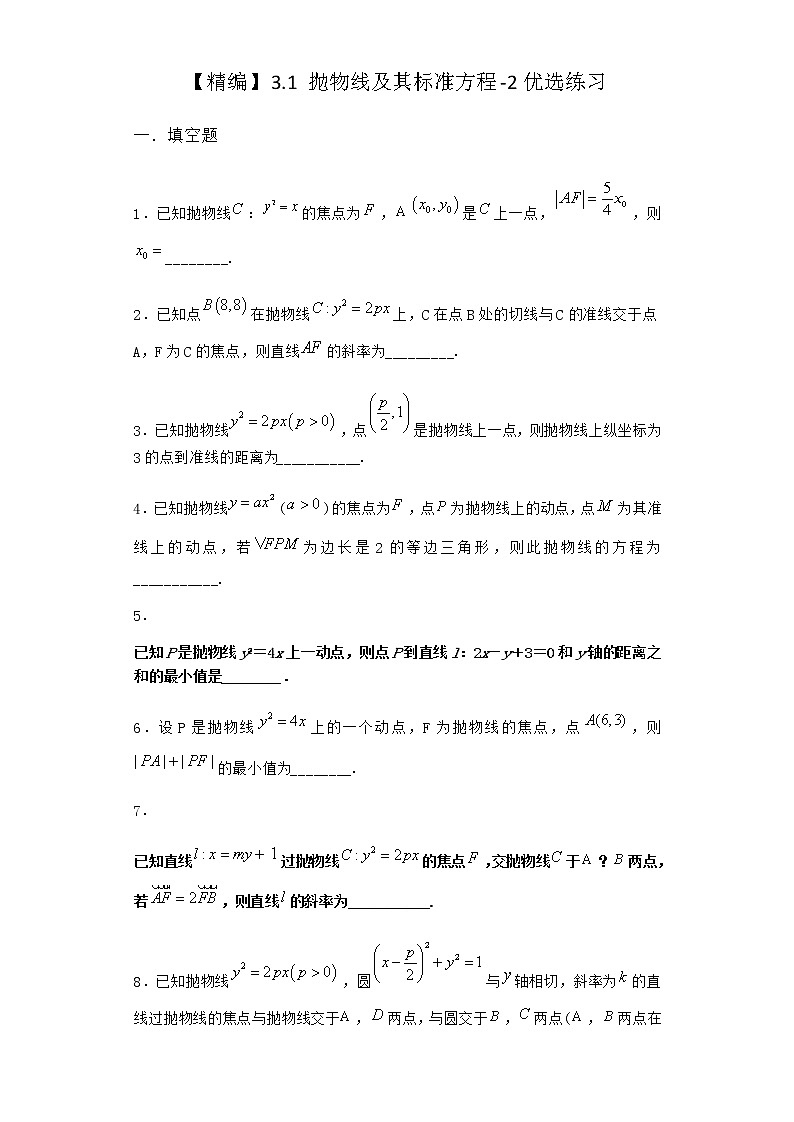 【精编】3.1 抛物线及其标准方程-2优选练习
一．填空题
1.已知抛物线C：y²=x的焦点为F，A(x₀,y₀)是C上一点，|AF|=5/4x₀，则
x₀=________.
2.已知点B(8,8)在抛物线C:y²=2px上，C在点B处的切线与C的准线交于点
A，F为C的焦点，则直线AF的斜率为_________.
3.已知抛物线y²=2px(p>0)，点(p/2,1)是抛物线上一点，则抛物线上纵坐标为
3的点到准线的距离为___________.
4.已知抛物线y=ax²(a>0)的焦点为F，点P为抛物线上的动点，点M为其准
线上的动点，若\/FPM为边长是2的等边三角形，则此抛物线的方程为
___________.
5.
已知P是抛物线y²＝4x上一动点，则点P到直线l：2x－y＋3＝0和y轴的距离之
和的最小值是________.
6.设P是抛物线y²=4x上的一个动点，F为抛物线的焦点，点A(6,3)，则
|PA|+|PF|的最小值为________.
7.
已知直线l:x=my+1过抛物线C:y²=2px的焦点F,交抛物线C于A？B两点,
若AF=2FB，则直线l的斜率为___________.
8.已知抛物线y²=2px(p>0)，圆(x-p/2)²+y²=1与y轴相切，斜率为k的直
线过抛物线的焦点与抛物线交于A，D两点，与圆交于B，C两点(A，B两点在